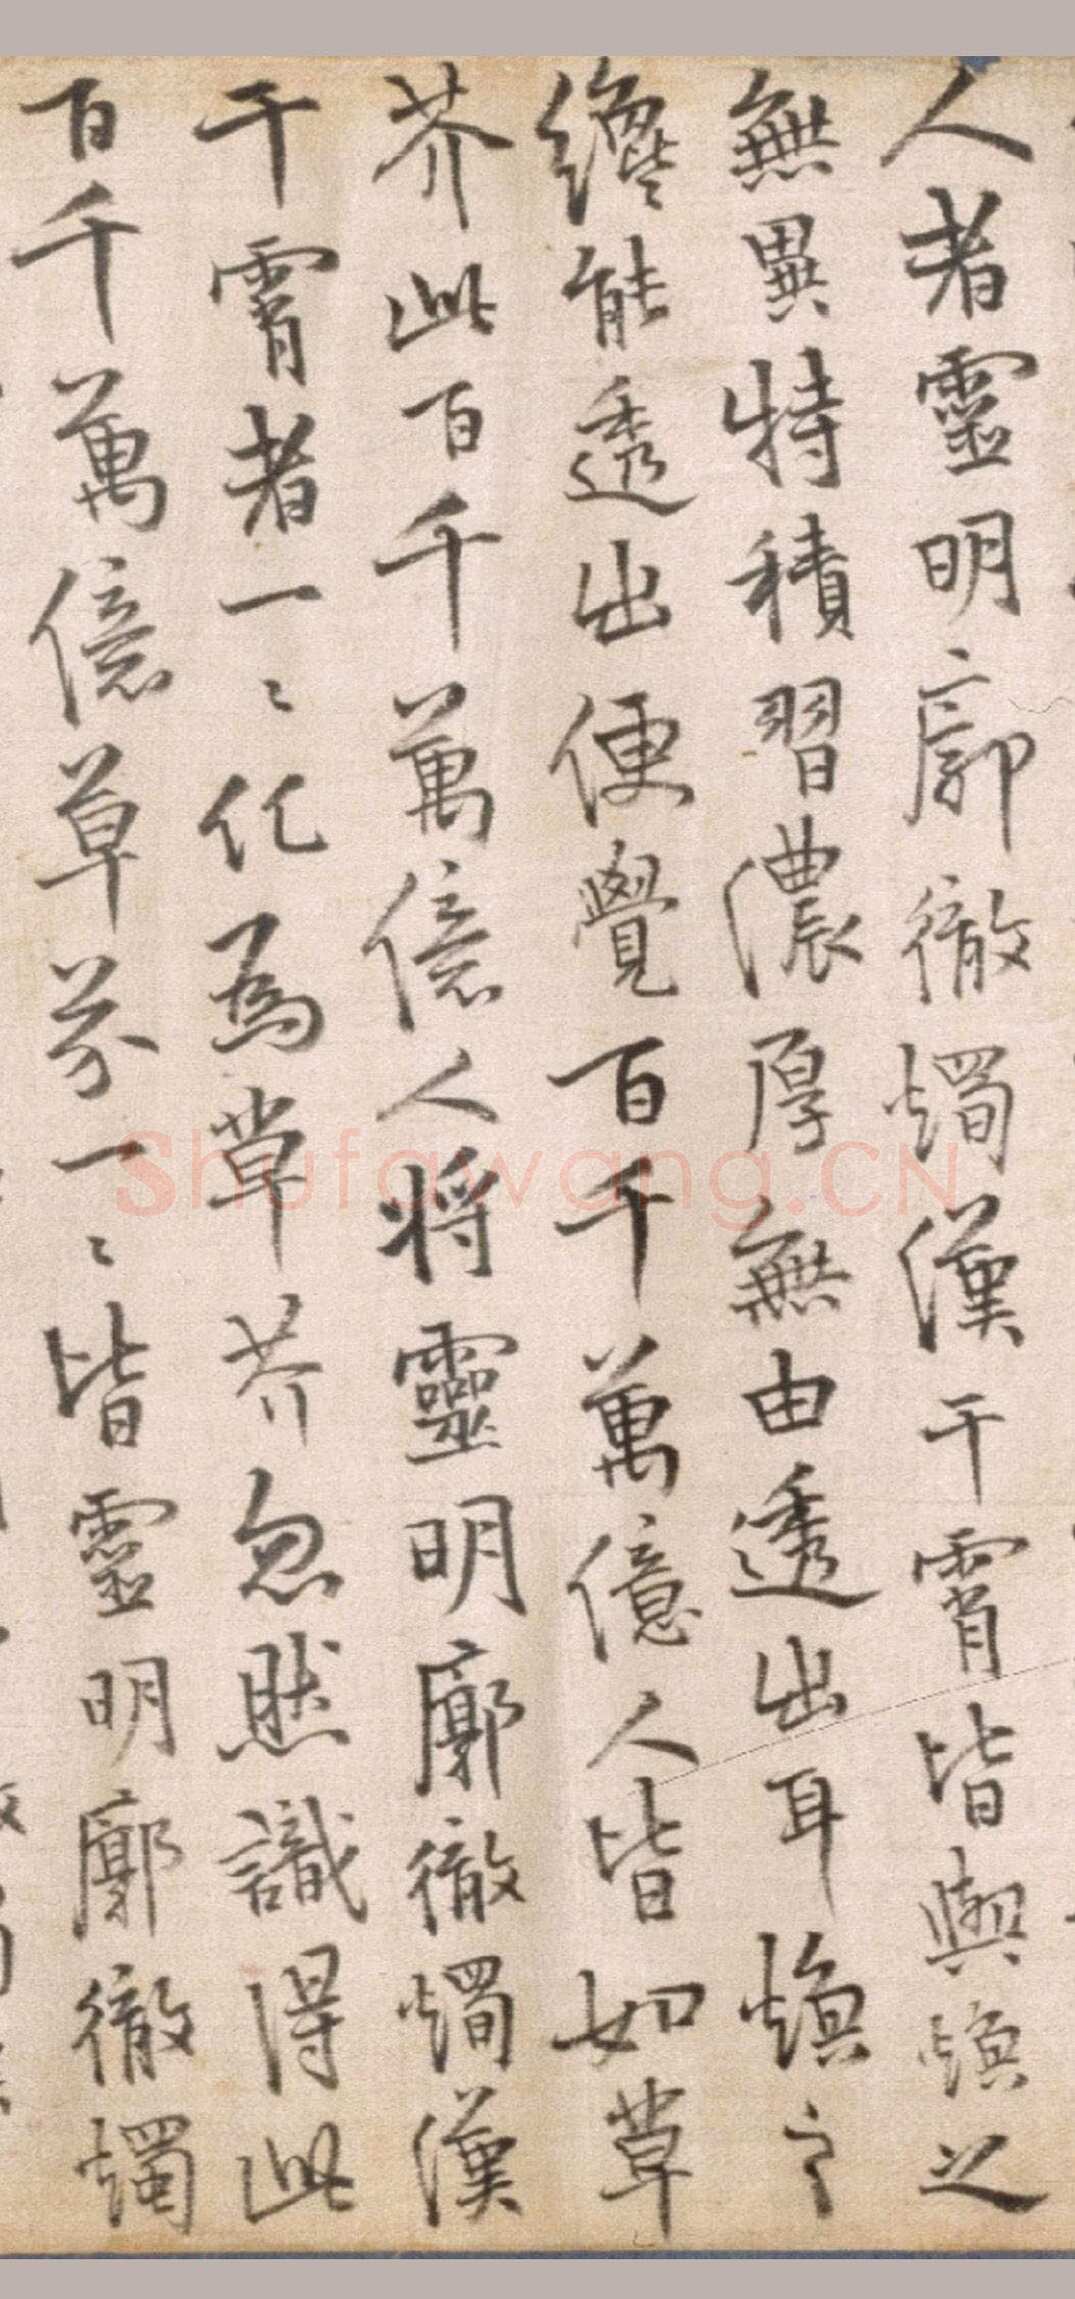 人者靈明廓徹燭漢干霄皆與煥之
無異特積習濃厚無由透出耳煥之
纔能透出便覺百千萬億人皆如草
芥此百千萬億人將靈明廓徹燭漢
干霄者一〻化為草芥忽然識得此
百千萬億草芥一〻皆靈明廓徹燭
Shufawang.CN